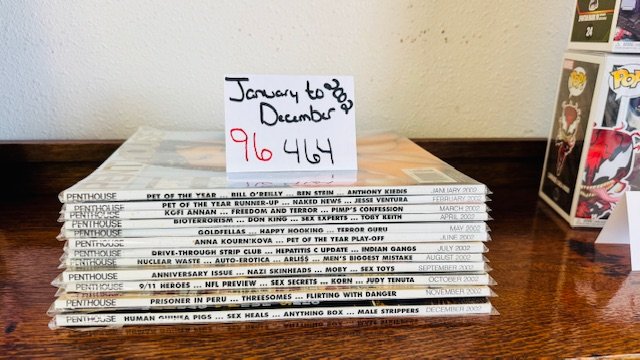 January to
December 2002
96 464
PENTHOUSE PET OF THE YEAR ... BILL O'REILLY ... BEN STEIN ... ANTHONY KIEDIS JANUARY 2002
PENTHOUSE PET OF THE YEAR RUNNER-UP ... NAKED NEWS ... JESSE VENTURA FEBRUARY 2002
PENTHOUSE KGFI ANNAN ... FREEDOM AND TERROR ... PIMP'S CONFESSION MARCH 2002
PENTHOUSE BIOTERRORISM ... DON KING ... SEX EXPERTS ... TOBY KEITH APRIL 2002
PENTHOUSE GOLDFELLAS ... HAPPY HOOKING ... TERROR GURU MAY 2002
PENTHOUSE ANNA KOURN'KOVA ... PET OF THE YEAR PLAY-OFF JUNE 2002
PENTHOUSE DRIVE-THROUGH STRIP CLUB ... HEPATITIS C UPDATE ... INDIAN GANGS JULY 2002
PENTHOUSE NUCLEAR WASTE ... AUTO-EROTICA ... ARLISS ... MEN'S BIGGEST MISTAKE AUGUST 2002
PENTHOUSE ANNIVERSARY ISSUE ... NAZI SKINHEADS ... MOBY ... SEX TOYS SEPTEMBER 2002
PENTHOUSE 9/11 HEROES ... NFL PREVIEW ... SEX SECRETS ... KORN ... JUDY TENUTA OCTOBER 2002
PENTHOUSE PRISONER IN PERU ... THREESOMES ... FLIRTING WITH DANGER NOVEMBER 2002
PENTHOUSE HUMAN GUINEA PIGS ... SEX HEALS ... ANYTHING BOX ... MALE STRIPPERS DECEMBER 2002
24
POP!
POP!